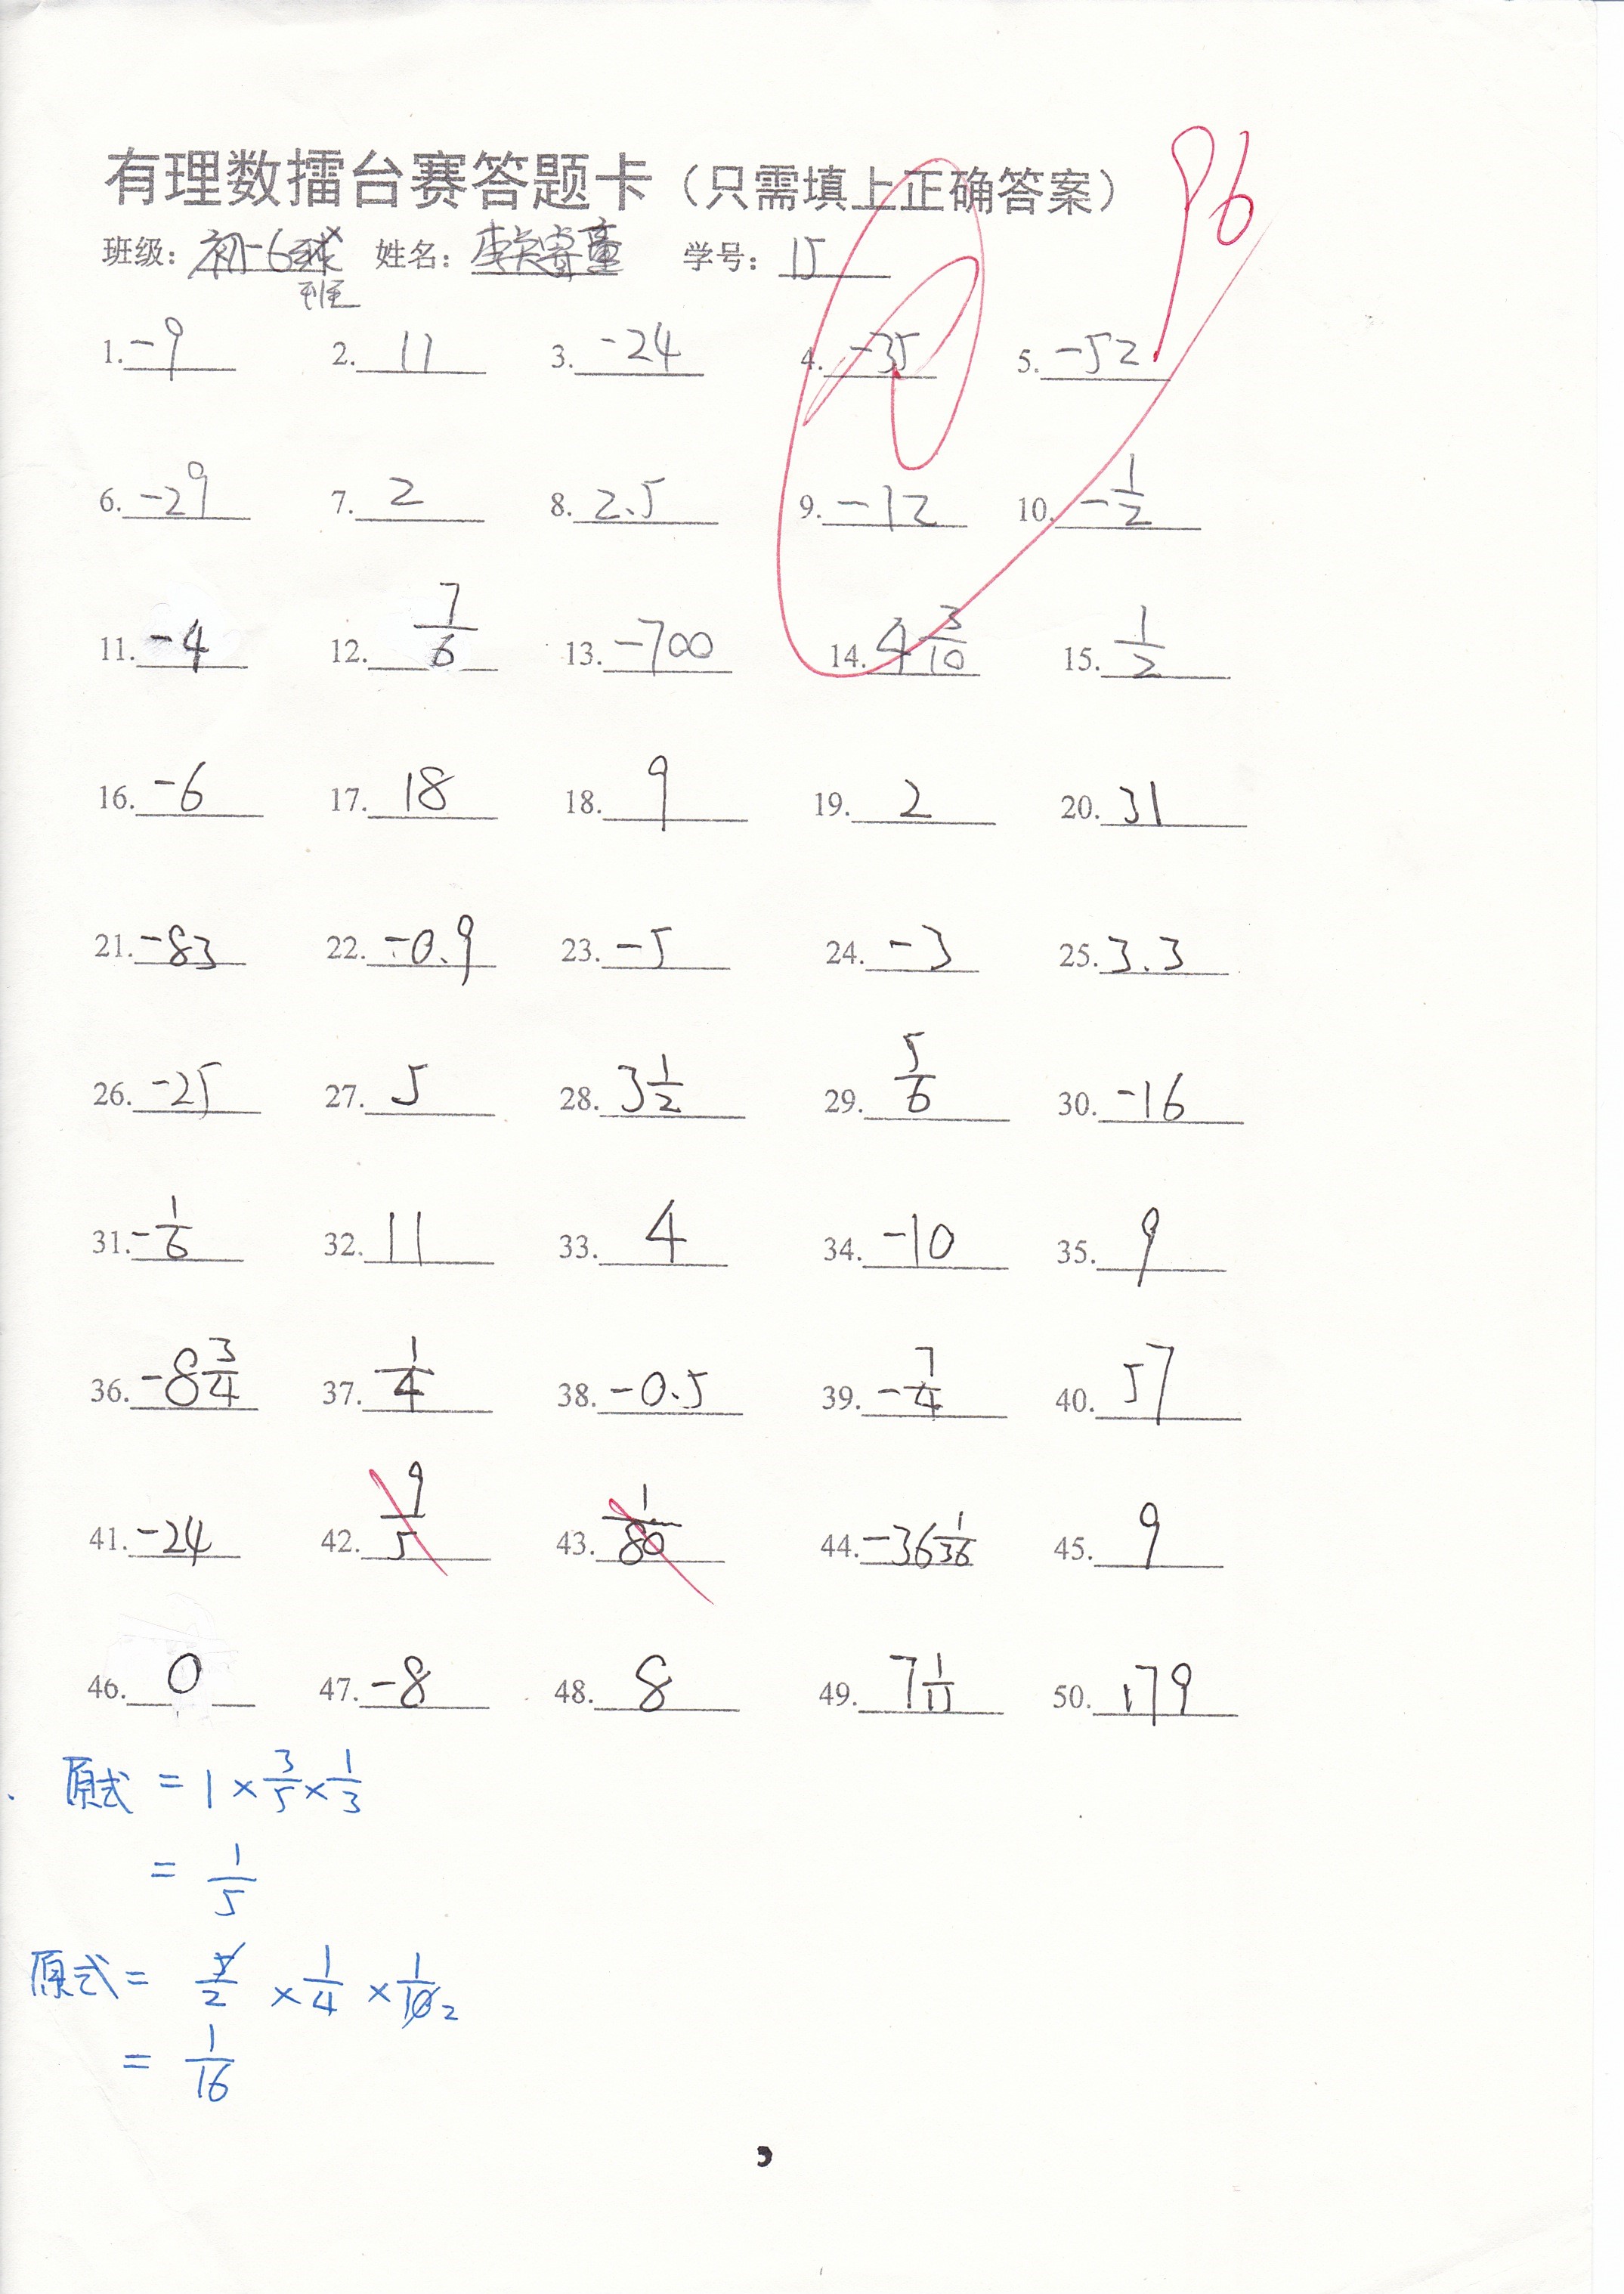 有理数擂台赛答题卡（只需填上正确答案） 96
班级：初一6 班 姓名： 学号：15
1. -9 2. 11 3. -24 4. -35 5. -52
6. -29 7. 2 8. 2.5 9. -12 10. -1/2
11. -4 12. 7/6 13. -700 14. 4 3/10 15. 1/2
16. -6 17. 18 18. 9 19. 2 20. 31
21. -83 22. -0.9 23. -5 24. -3 25. 3.3
26. -25 27. 5 28. 3 1/2 29. 5/6 30. -16
31. -1/6 32. 11 33. 4 34. -10 35. 9
36. -8 3/4 37. 1/4 38. -0.5 39. -7/4 40. 57
41. -24 42. 9/5 43. 1/80 44. -36 1/36 45. 9
46. 0 47. -8 48. 8 49. 7 1/11 50. 179
原式 = 1 × 3/5 × 1/3
= 1/5
原式 = 5/2 × 1/4 × 1/10 2
= 1/16